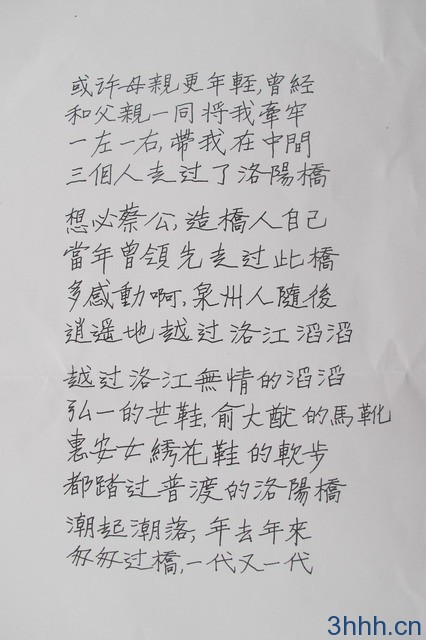 或许母親更年輕,曾經
和父親一同將我牽牢
一左一右,帶我在中間
三個人走过了洛陽橋
想必蔡公,造橋人自己
當年曾領先走过此橋
多感動啊,泉州人隨後
逍遥地越过洛江滔滔
越过洛江無情的滔滔
弘一的芒鞋,俞大猷的馬靴
惠安女綉花鞋的軟步
都踏过普渡的洛陽橋
潮起潮落,年去年來
匆匆过橋,一代又一代
3hhh.cn